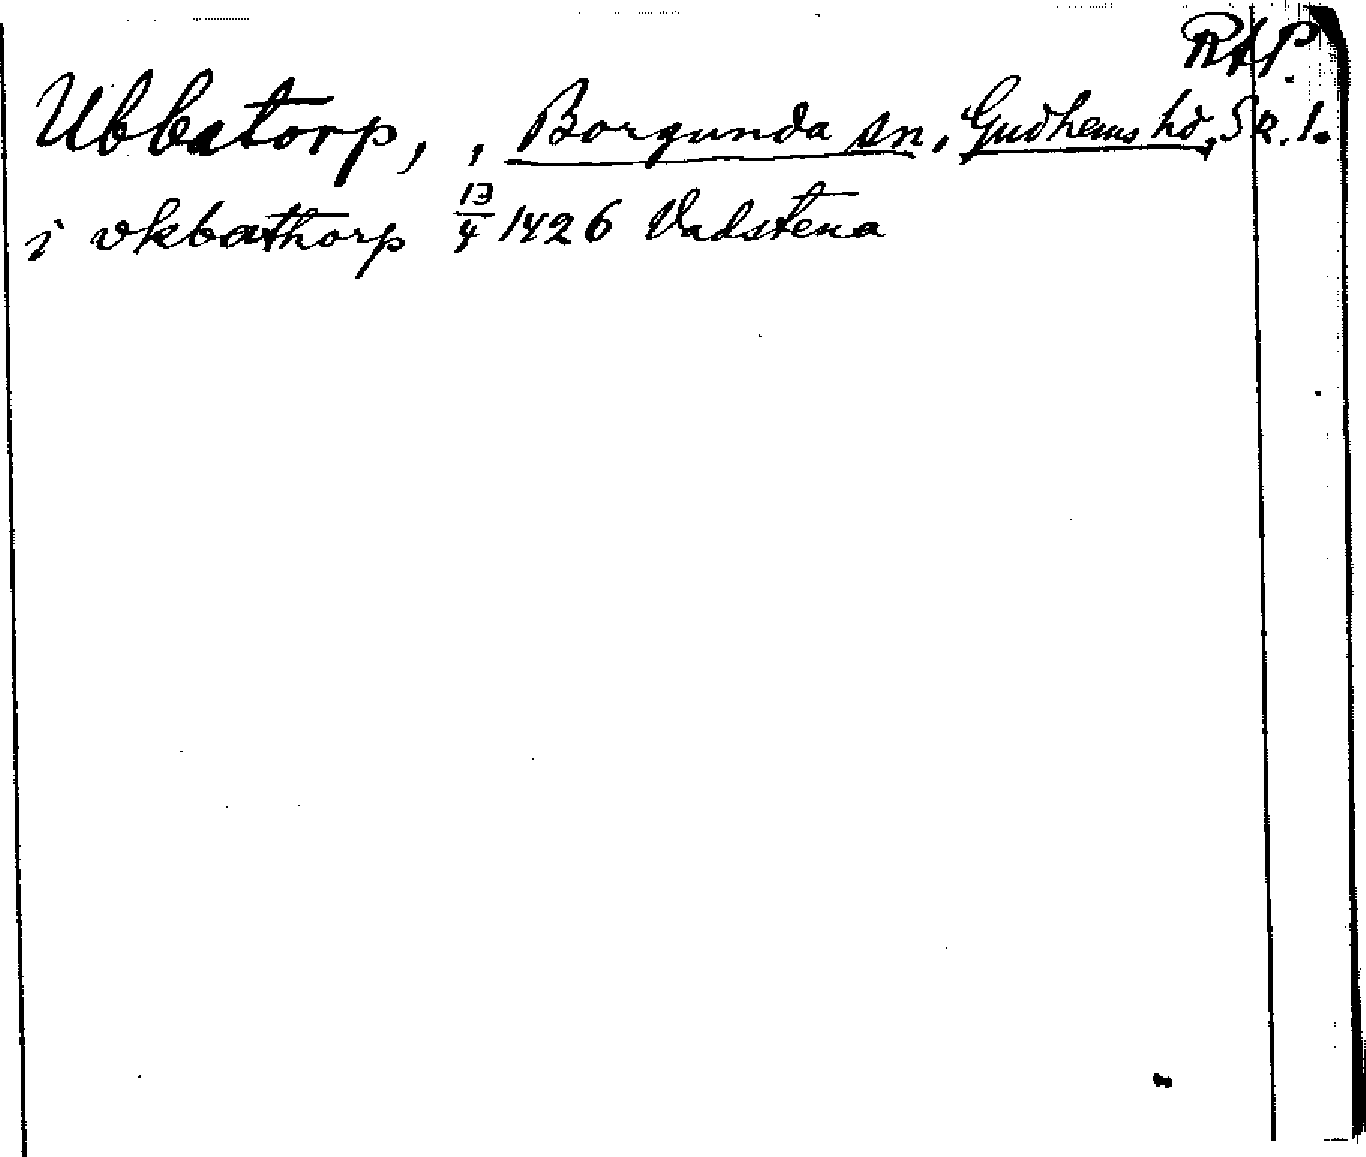 RAP.
Ubbatorp, , Borgunda sn, Gudhems hd, Sk. l.
i vkbathorp 13/4 1426 Vadstena